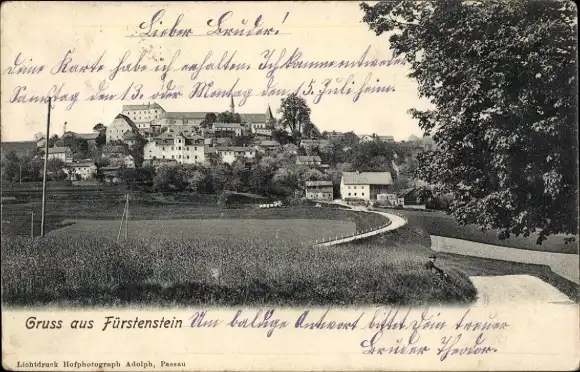 Lieber Brüder!
Deine Karte habe ich erhalten. Ich komme entweder
Samstag den 13. oder Montag den 15. Juli heim.
Gruss aus Fürstenstein Um baldige Antwort bittet Dein treuer
Bruder Theodor.
Lichtdruck Hofphotograph Adolph, Passau